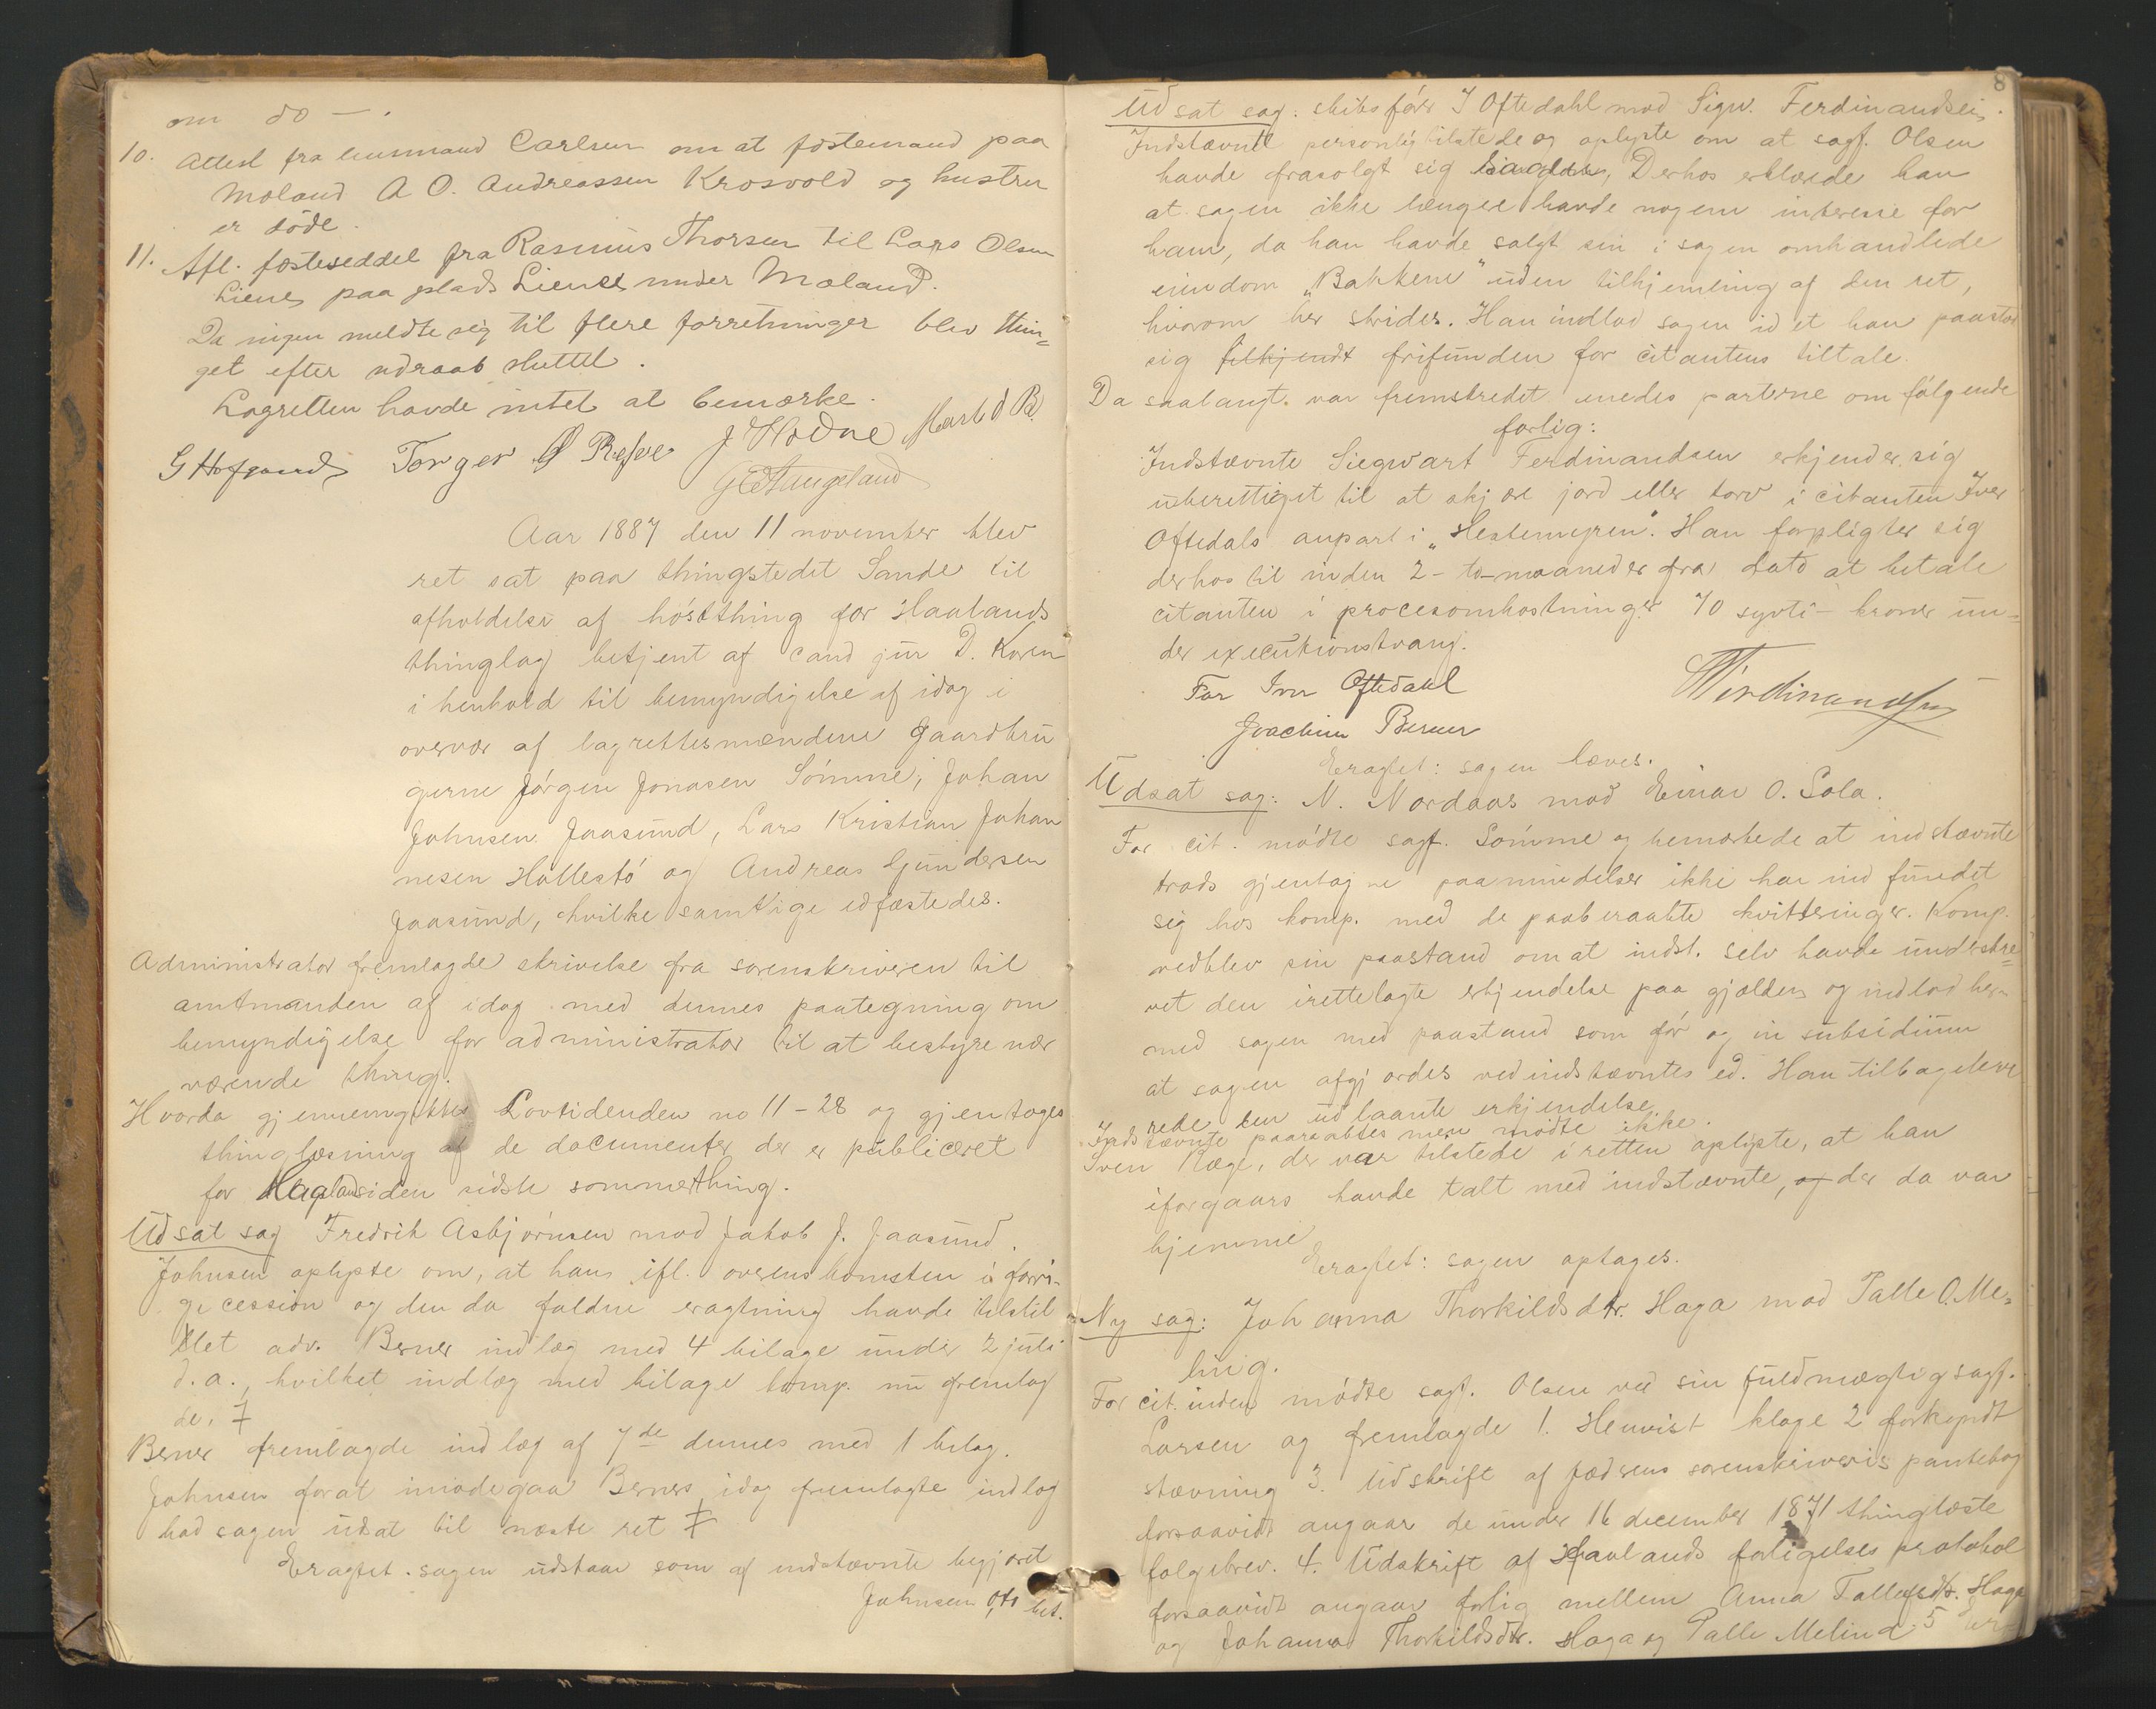 om do — .
10. Attest fra lensmand Carlsen om at fæstemand paa
Moland A O. Andreassen Krosvold og hustru
er døde.
11. Afl. fæsteseddel fra Rasmus Thorsen til Lars Olsen
Liene paa plads Liene under Moland.
Da ingen meldte sig til flere forretninger blev thin=
get efter udraab sluttet.
Lagretten havde intet at bemærke.
G Hofgaard Torger Ø Refve J Hodne Mart d R.
G E Haugeland
Aar 1887 den 11 november blev
ret sat paa thingstedet Sande til
afholdelse af høstthing for Haalands
thinglag betjent af cand jur D. Koren
i henhold til bemyndigelse af idag i
overvær af lagrettesmændene Gaardbru
gerne Jørgen Jonasen Sømme, Johan
Johnsen Jaasund, Lars Kristian Johan
nesen Hallestø og Andreas Gundersen
Jaasund, hvilke samtlige edfæstedes.
Administrator fremlagde skrivelse fra sorenskriveren til
amtmanden af idag med dennes paategning om
bemyndigelse for administrator til at bestyre nær
værende thing.
Hvorda gjennemgikkes Lovtidenden no 11-28 og gjentoges
thinglæsning af de documenter der er publiceret
for Haaland siden sidste sommerthing.
Udsat sag Fredrik Asbjørnsen mod Jakob J. Jaasund.
Johnsen oplyste om, at han ifl. overenskomsten i forri-
ge cession og den da faldne eragtning havde tilstil
let adv. Berner indlæg med 4 bilage under 2 juli
d.a., hvilket indlæg med bilage komp. nu fremlag
de.
Berner fremlagde indlæg af 7de dennes med 1 bilag.
Johnsen for at imødegaa Berners idag fremlagte indlæg
bad sagen udsat til næste ret
Eragtet. sagen udstaar som af indstævnte begjæret
Johnsen bet.
8
Udsat sag: skibsfører I Oftedahl mod Sigw. Ferdinandsen.
Indstævnte personlig tilstede og oplyste om at sagf. Olsen
havde frasagt sig sagen, Derhos erklærede han
at sagen ikke længer havde nogen interesse for
ham, da han havde salgt sin i sagen omhandlede
eiendom „Bakkene" uden tilhjemling af den ret,
hvorom her strides. Han indlod sagen idet han paastod
sig tilkjendt frifunden for citantens tiltale.
Da saalangt var fremskredet enedes parterne om følgende
forlig:
Indstævnte Siegwart Ferdinandsen erkjender sig
uberettiget til at skjære jord eller torv i citanten Iver
Oftedals anpart i „Hestemyren". Han forpligter sig
derhos til inden 2 - to - maaneder fra dato at betale
citanten i procesomkostninger 70 sytti - kroner un=
der executionstvang.
For Iver Oftedahl
Joachim Berner
SFerdinandsen
Eragtet: sagen hæves.
Udsat sag: N. Nordaas mod Einar O. Sola.
For cit. mødte sagf. Sømme og bemærkede at indstævnte
trods gjentagne paamindelser ikke har ind fundet
sig hos komp. med de paaberaabte kvitteringer. Komp.
vedblev sin paastand om at indst. selv havde underskre=
vet den irettelagte erkjendelse paa gjælden og indlod her-
med sagen med paastand som før og in subsidium
at sagen afgjordes ved indstævntes ed. Han tilbageleve
rede den udlaante erkjendelse.
Indstævnte paaraabtes men mødte ikke.
Sven Ræge, der var tilstede i retten oplyste, at han
iforgaars havde talt med indstævnte, og der da var
hjemme
Eragtet: sagen optages.
Ny sag: Johanna Thorkildsdtr. Haga mod Palle O. Me=
ling.
For cit.inden mødte sagf. Olsen ved sin fuldmægtig sagf.
Larsen og fremlagde 1. Henvist klage 2 forkyndt
stævning 3. Udskrift af Jæderens sorenskriveris pantebog
forsaavidt angaar de under 16 december 1871 thinglæste
følgebrev. 4. Udskrift af Haalands forligelses protokol
forsaavidt angaar forlig mellem Anna Tollefsdtr. Haga
og Johanna Thorkildsdtr. Haga og Palle Meling. 5 er-